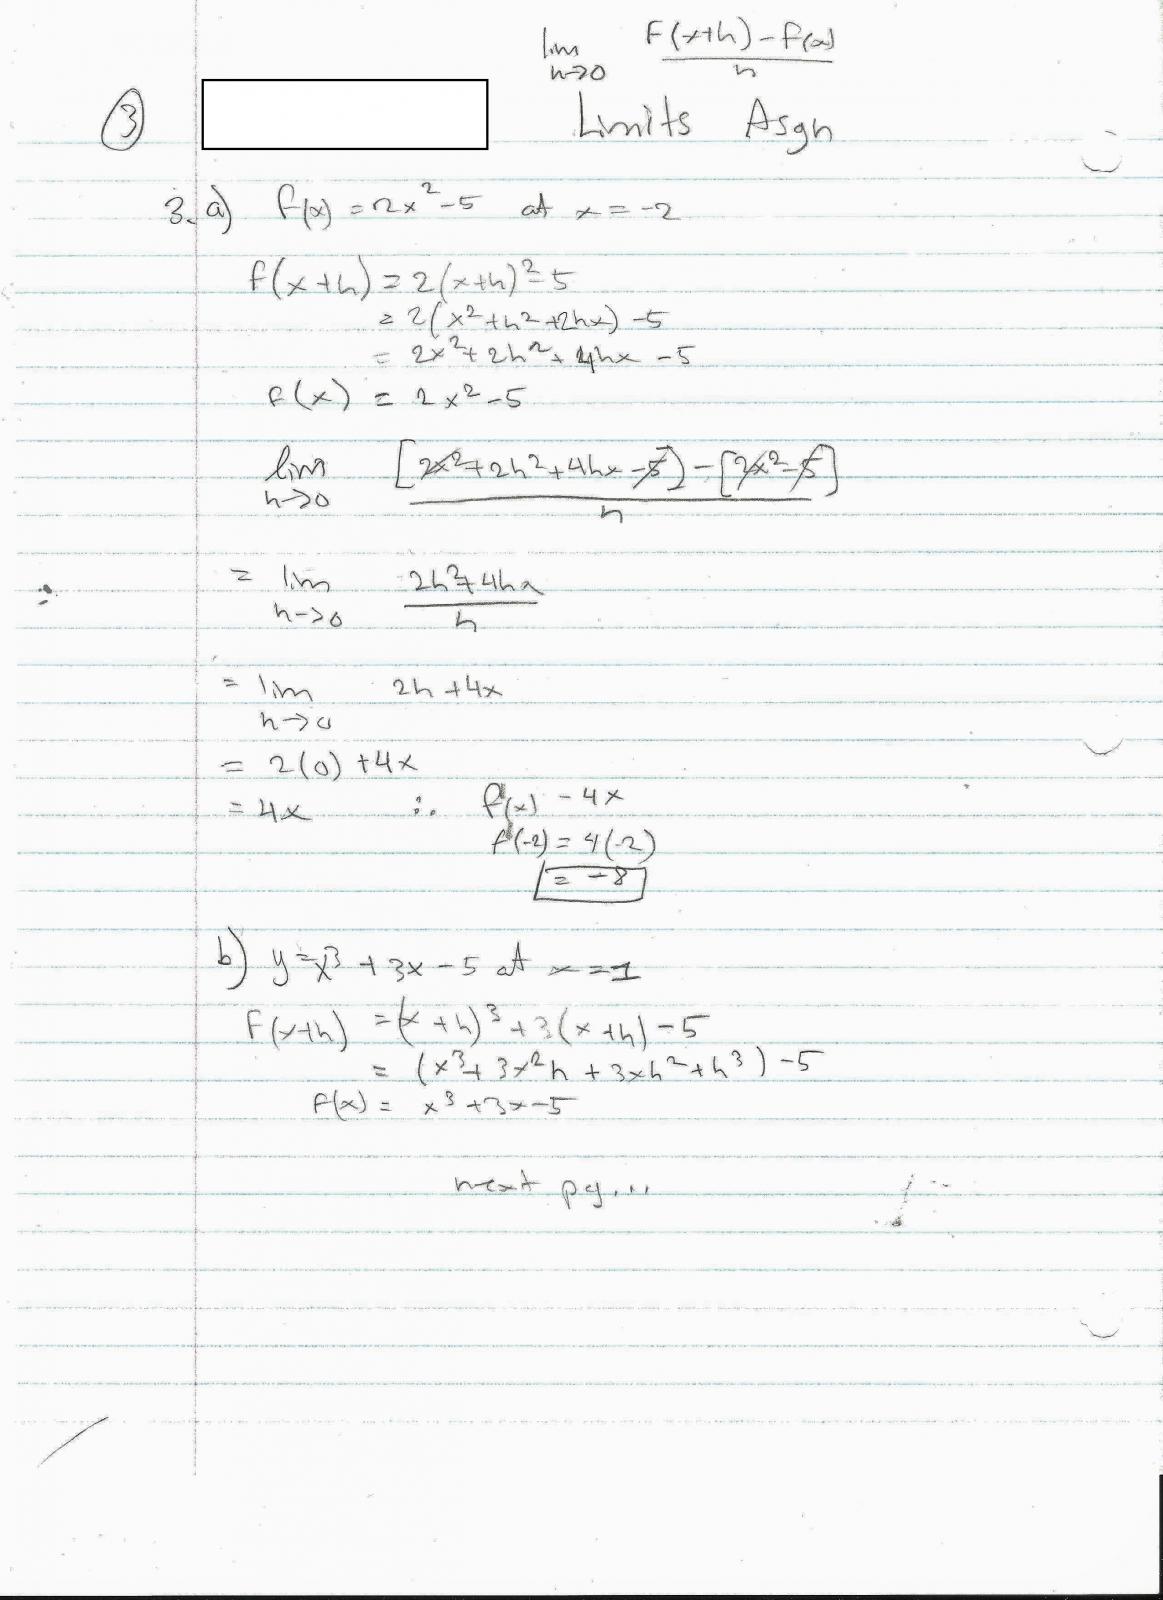 lim F(x+h) - f(x)
h→0 h
③ Limits Asgn
3. a) f(x) = 2x² - 5 at x = -2
f(x+h) = 2(x+h)² - 5
= 2(x² + h² + 2hx) - 5
= 2x² + 2h² + 4hx - 5
f(x) = 2x² - 5
lim [2x² + 2h² + 4hx - 5] - [2x² - 5]
h→0 h
= lim 2h² + 4hx
h→0 h
= lim 2h + 4x
h→0
= 2(0) + 4x
= 4x ∴ f'(x) = 4x
f'(-2) = 4(-2)
= -8
b) y = x³ + 3x - 5 at x = 1
F(x+h) = (x+h)³ + 3(x+h) - 5
= (x³ + 3x²h + 3xh² + h³) - 5
f(x) = x³ + 3x - 5
next pg...